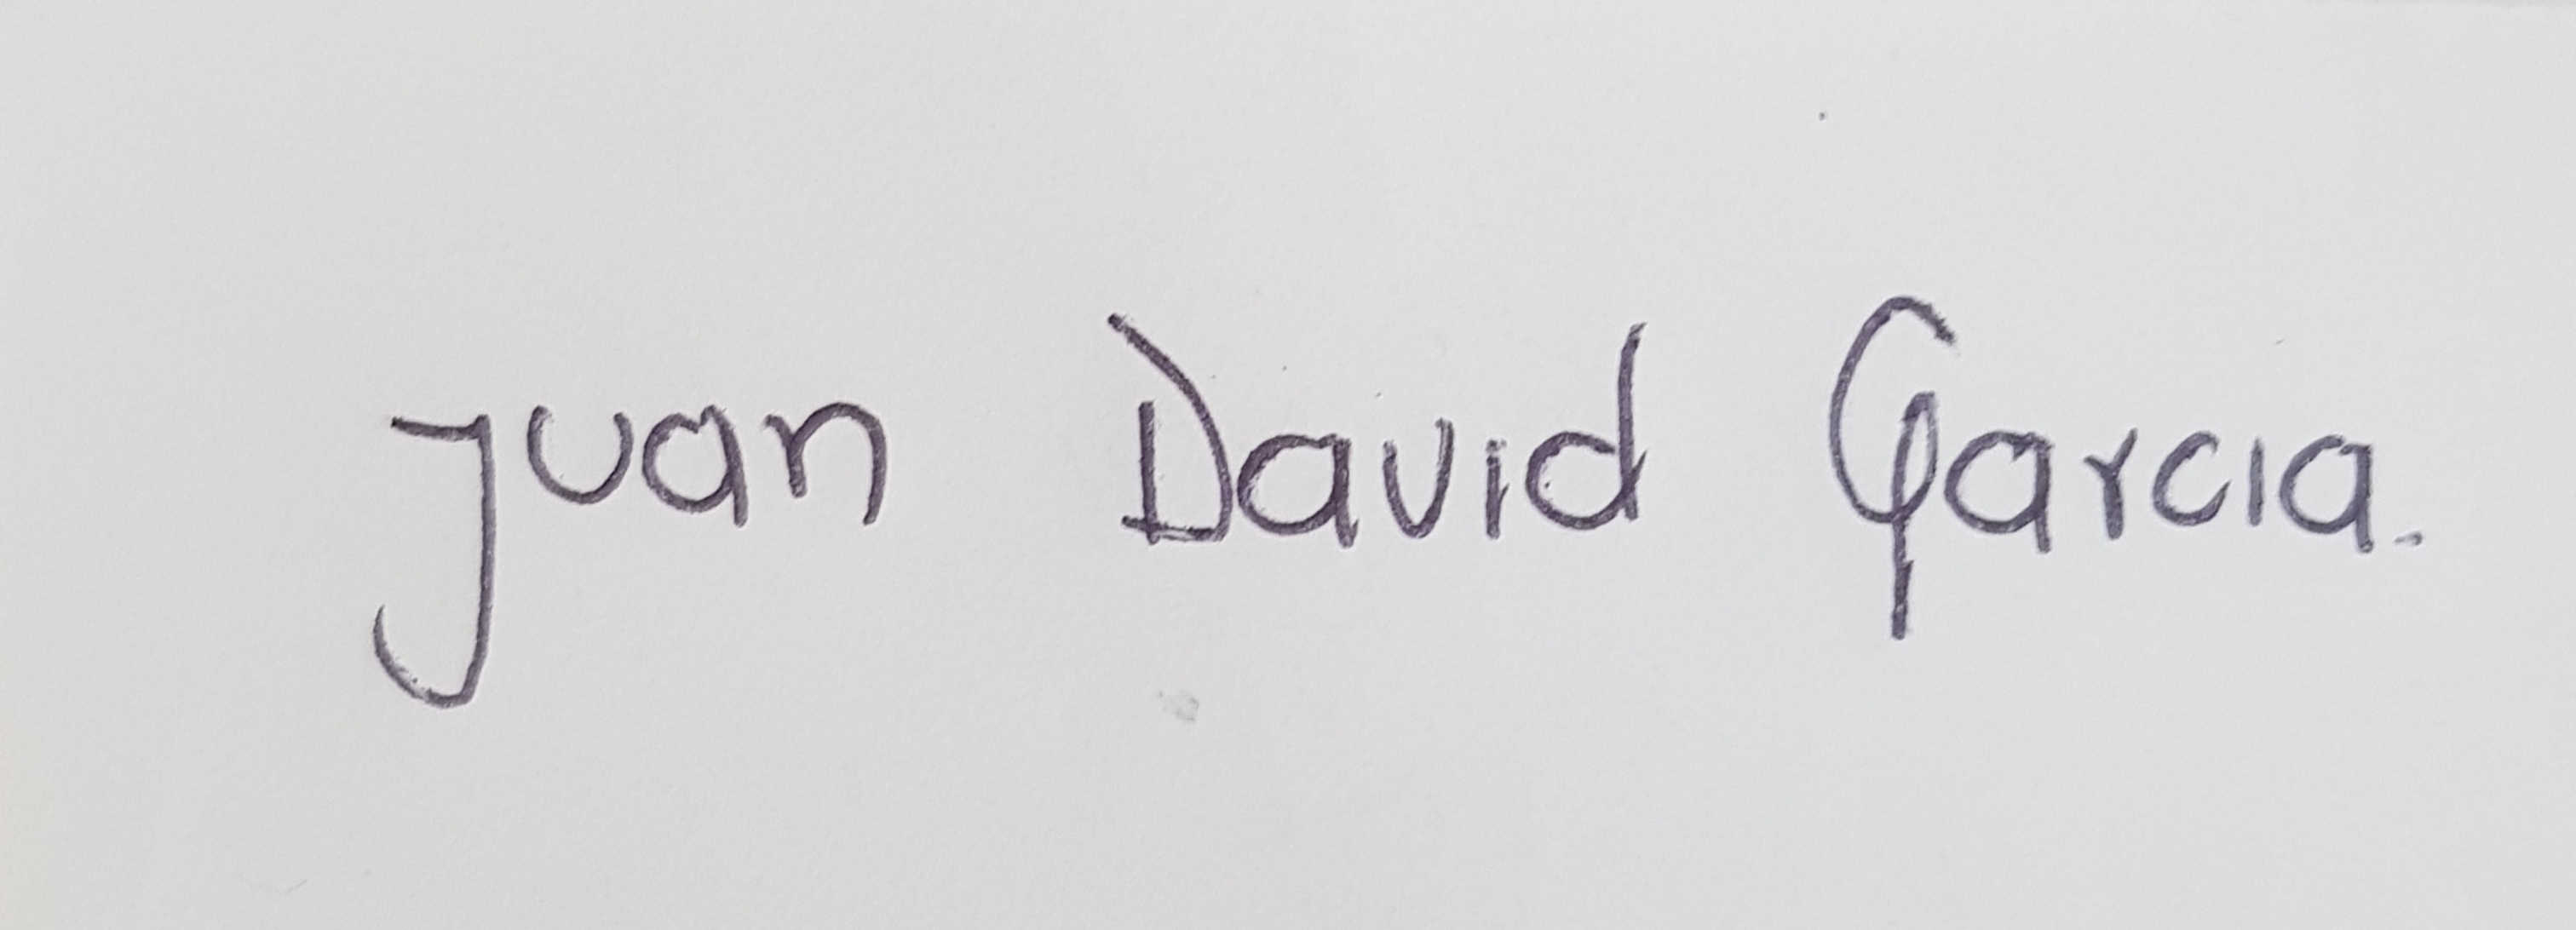 Juan David Garcia.